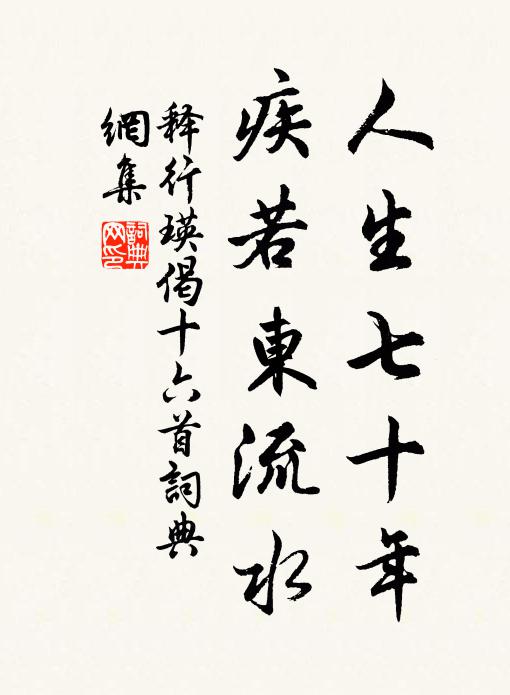 人生七十年
疾若東流水
释行瑛偈十六首詞典
網集
詞典
网印